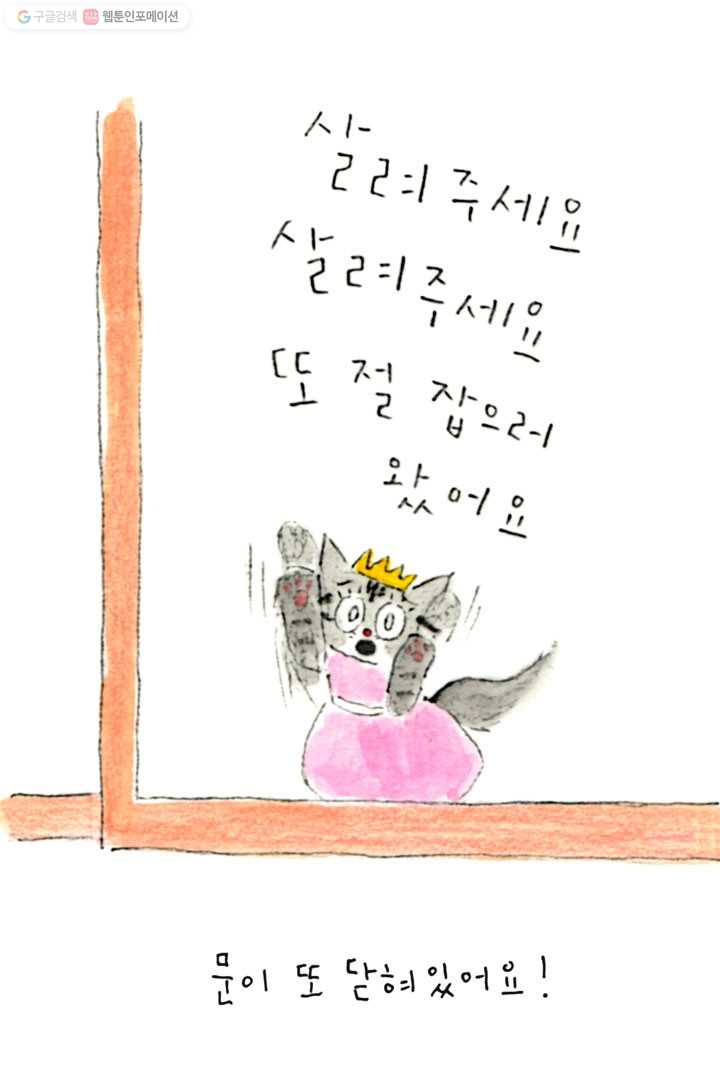 구글검색 웹툰인포메이션
살려주세요
살려주세요
또 절 잡으러
왔어요
문이 또 닫혀있어요!